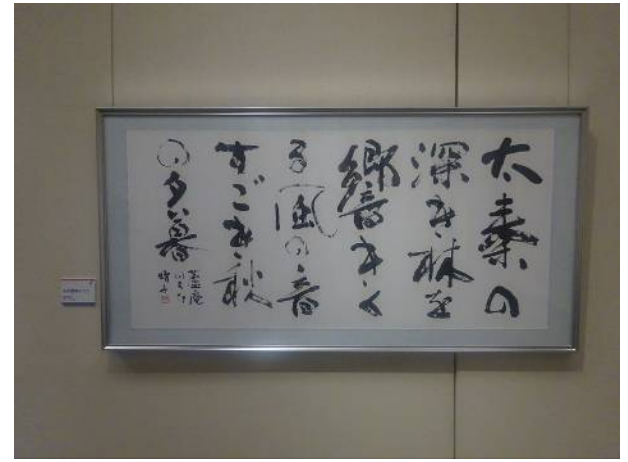 太秦の
深き林を
響きく
る風の音
すごき秋
の夕暮
蘆庵